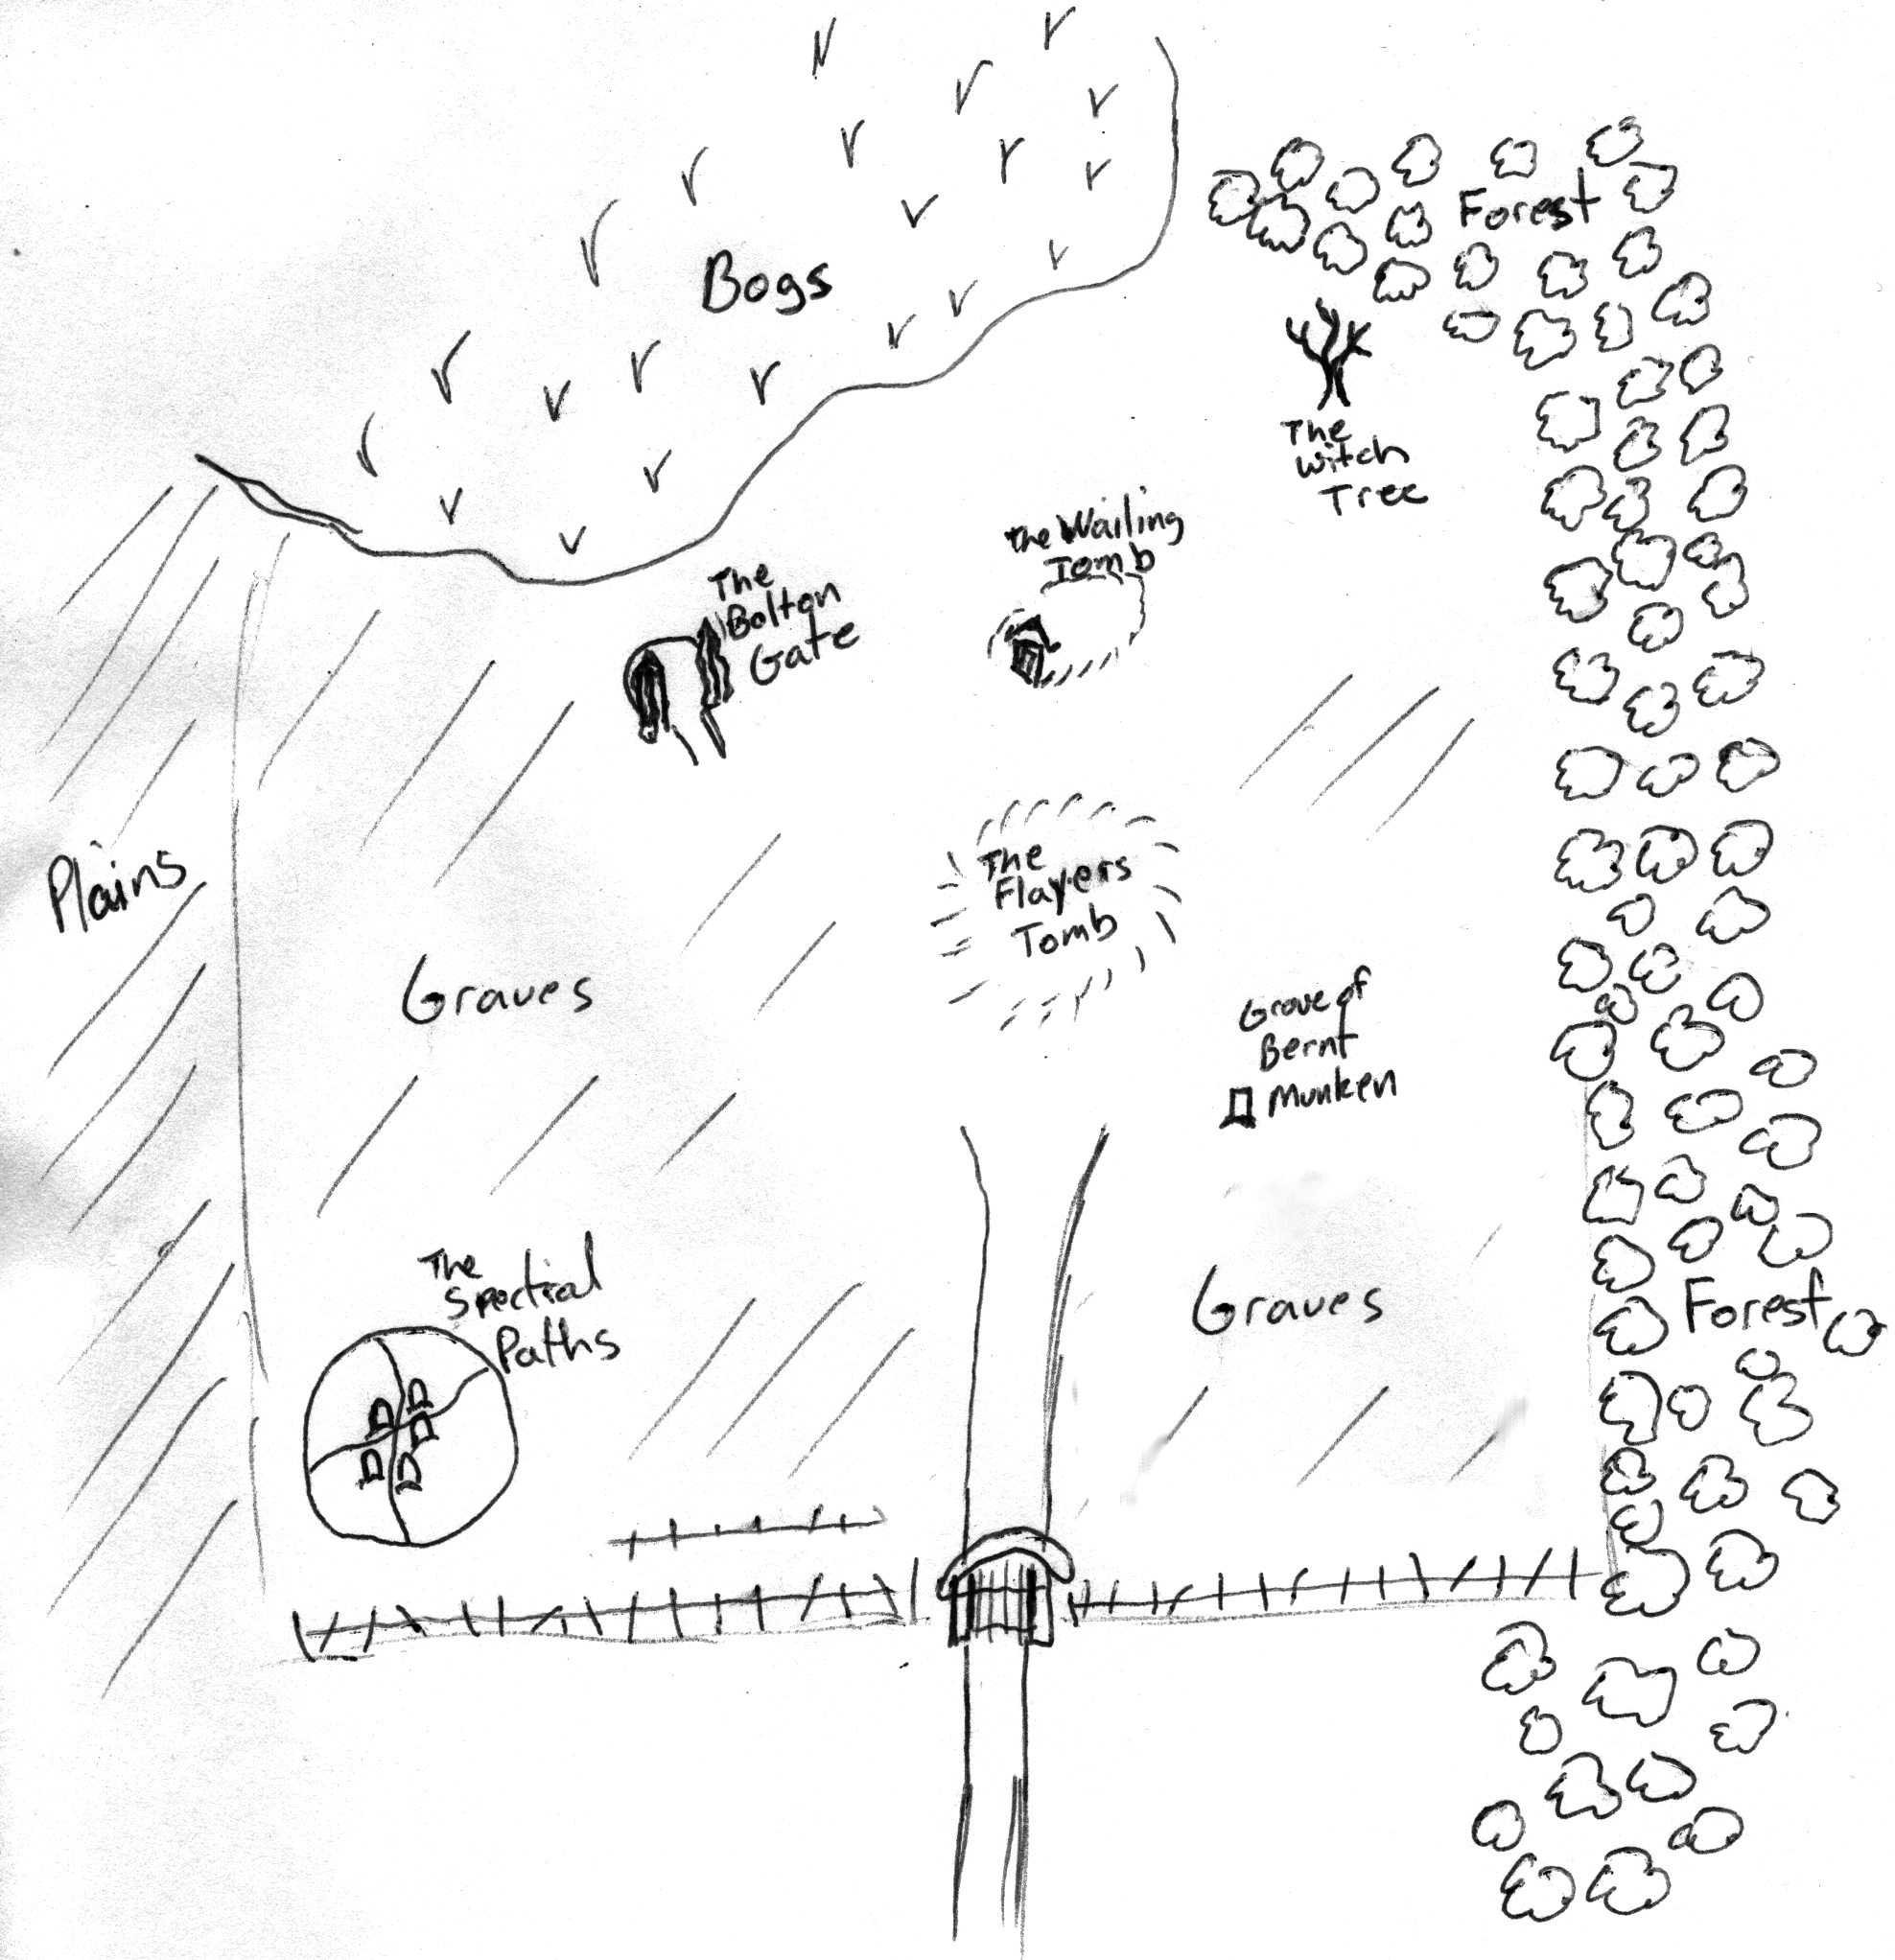 Forest
Bogs
The
Witch
Tree
the Wailing
Tomb
The
Bolton
Gate
Plains
The
Flayers
Tomb
Graves
Grave of
Bernt
Munken
The
Spectral
Paths
Graves
Forest